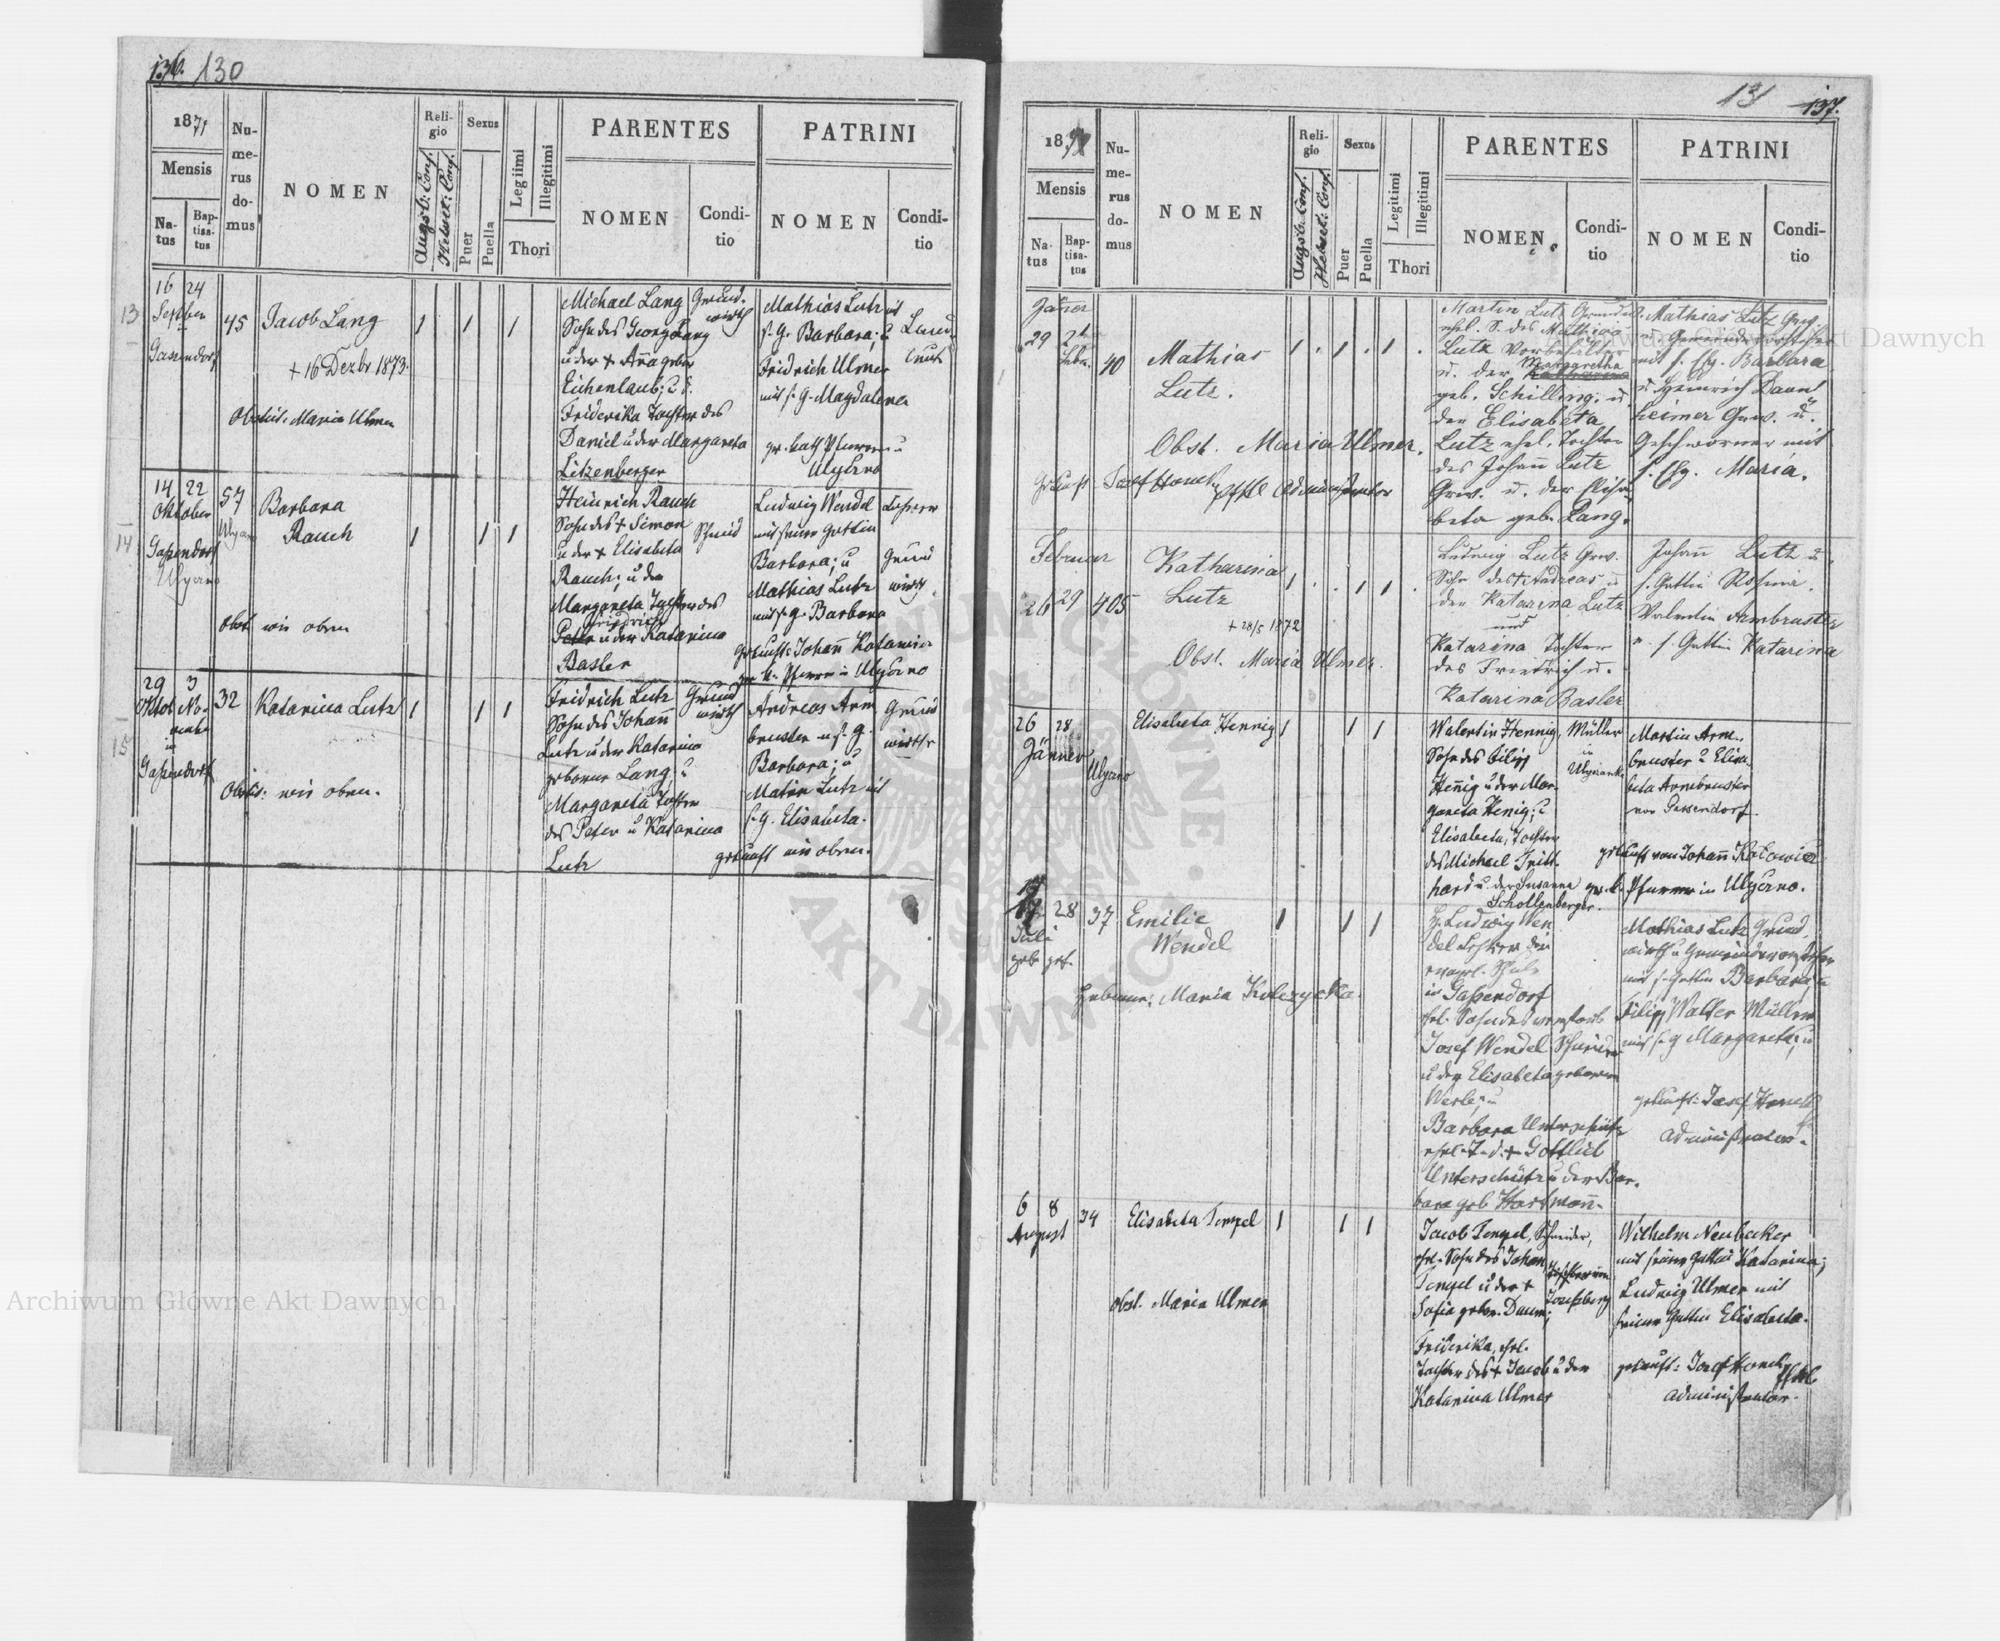 136. 130
1871
Mensis
Na-
tus
Bap-
tisa-
tus
Nu-
me-
rus
do-
mus
NOMEN
Reli-
gio
Augsb: Conf.
Helvet: Conf.
Sexus
Puer
Puella
Legiimi
Illegitimi
Thori
PARENTES
NOMEN
Condi-
tio
PATRINI
NOMEN
Condi-
tio
13
16 24
Septber
Gassendorf
45
Jacob Lang
+ 16 Dezbr 1873.
Obstet: Maria Ulmer
1 1 1
Michael Lang
Sohn des Georg Lang
u der + Anna geborn
Eichenlaub; u d.
Friderika Tochter des
Daniel u der Margareta
Litzenberger
Grund-
wirth
Mathias Lutz mit
s. G. Barbara; u
Fridrich Ulmer
mit s. G. Magdalena
gr. kath Pfarrer in
Ulyczno
Land-
leute
14
14 22
Oktober
Gassendorf
Ulyczno
57
Ulyczno
Barbara
Rauch
Obst. wie oben
1 1 1
Heinrich Rauch
Sohn des + Simon
u der + Elisabeta
Rauch; u der
Margareta Tochter des
Friedrich
Peter u der Katarina
Basler
Schmid
Ludwig Wendel
mit seiner Gattin
Barbara; u
Mathias Lutz
mit s. g. Barbara
getauft: Johann Kotowicz
gr. k. Pfarrer in Ulyczno
Lehrer
Grund
wirth
15
29 3
Oktob No-
vember
in
Gassendorf
32
Katarina Lutz
Obstet: wie oben.
1 1 1
Fridrich Lutz
Sohn des Johann
Lutz u der Katarina
geborene Lang; u
Margareta Tochter
des Peter u Katarina
Lutz
Grund
wirth
Andreas Arm
bruster u s. g.
Barbara; u
Matin Lutz mit
s. g. Elisabeta.
getauft wie oben.
Grund
wirthe
131 137.
1872
Mensis
Na-
tus
Bap-
tisa-
tus
Nu-
me-
rus
do-
mus
NOMEN
Reli-
gio
Augsb: Conf.
Helvet: Conf.
Sexus
Puer
Puella
Legitimi
Illegitimi
Thori
PARENTES
NOMEN
Condi-
tio
PATRINI
NOMEN
Condi-
tio
Jäner
29
40
Mathias
Lutz.
Obst. Maria Ulmer.
getauft Josef Honel Administrator
1 1 1
Martin Lutz Grundw.
ehel. S. des Mathias
Lutz Vorbehälter
u. der Margaretha
geb. Schilling. u
der Elisabeta
Lutz ehel. Tochter
des Johann Lutz
Grw. u. der Elisa-
beta geb. Lang.
Mathias Lutz Grw.
u. Gemeindevorsteher
mit s. Eg. Barbara
u. Heinrich Daun
heimer Grw. u.
Geschworner mit
s. Eg. Maria.
Februar
26 29
405
Katharina
Lutz
+ 28/5 1872
Obst. Maria Ulmer.
1 1 1
Ludwig Lutz Grw.
Sohn des + Andreas u
der Katarina Lutz
und
Katarina Tochter
des Friedrich u.
Katarina Basler
Johann Lutz u.
s. Gattin Rosina.
Valentin Armbruster
u. s. Gattin Katarina
26 28
Jänner
Ulyczno
Elisabeta Hennig
1 1 1
Walentin Hennig,
Sohn des Filipp
Hennig u der Mar-
gareta Henig; u
Elisabeta, Tochter
des Michael Fritt
hard u. der Susanna
Schollenberger.
Müller
in
Martin Arm-
bruster u Elisa-
beta Armbruster
von Gassendorf
getauft von Johann Kotowicz
gr. k. Pfarrer in Ulyczno.
17 28
Juli
geb get.
37
Emilie
Wendel
Hebamme: Maria Kolczycka.
1 1 1
H. Ludwig Wen
del Lehrer der
evangl. Schule
in Gassendorf
ehl. Sohn des verstorb
Josef Wendel Schneider
u der Elisabeta geborene
Werle; u
Barbara Unterschütz
ehl. T. d. + Gottlieb
Unterschütz u der Bar-
bara geb Hartmann.
Mathias Lutz Grund,
wirth u Gemeindevorsteher
mit s. Gattin Barbara; u
Filipp Walter Müller
mit s. g Margareta; u
getauft: Josef Honel
Administrator.
6 8
August
34
Elisabeta Tempel
obst. Maria Ulmer
1 1 1
Jacob Tempel, Schneider,
ehl. Sohn des Johann
Tempel u der +
Sofia geborn. Daum;
Josefsberg
Friderika, ehl.
Tochter des + Jacob u der
Katarina Ulmer
Wilhelm Neubecker
mit seiner Gattin Katarina;
Ludwig Ulmer mit
seiner Gattin Elisabeta.
getauft: Josef Honel
Administrator.
Archiwum Główne Akt Dawnych
Archiwum Główne Akt Dawnych